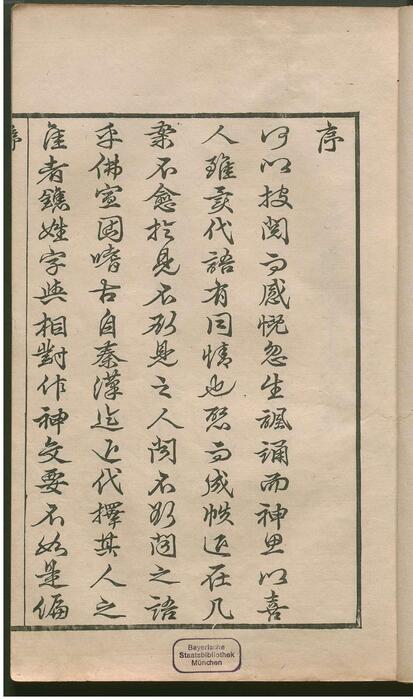 序
何以披閱而感慨忽生諷誦而神思以喜
人雖異代語有同情也聚而成帙近在几
案不愈於見不見之人聞不聞之語
乎佛宣因嗜古自秦漢迄近代擇其人之
佳者鐫姓字與相對作神交要不如是偏
序
Bayerische
Staatsbibliothek
München